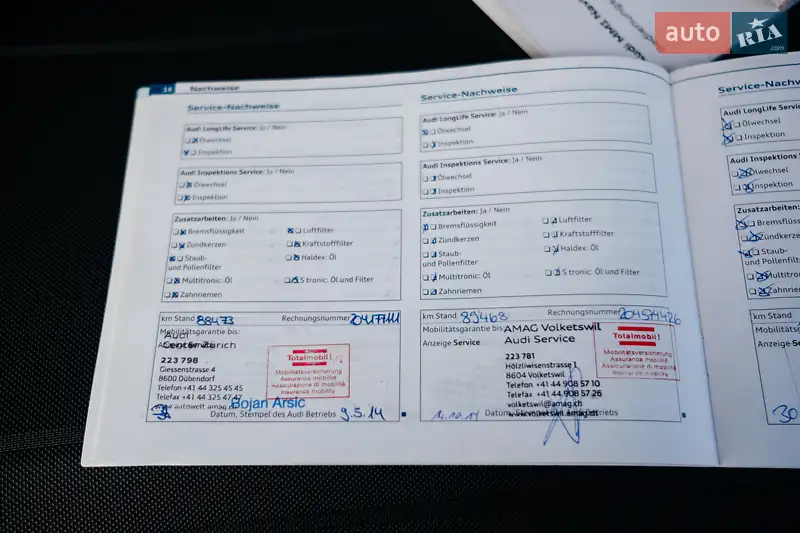 auto RIA .com
Audi MMI Navi
16 Nachweise
Service-Nachweise
Audi LongLife Service: Ja / Nein
Ölwechsel
Inspektion
Audi Inspektions Service: Ja / Nein
Ölwechsel
Inspektion
Zusatzarbeiten: Ja / Nein
Bremsflüssigkeit
Luftfilter
Zündkerzen
Kraftstofffilter
Staub-
und Pollenfilter
Haldex: Öl
Multitronic: Öl
S tronic: Öl und Filter
Zahnriemen
km Stand 88473
Rechnungsnummer
Mobilitätsgarantie bis:
Audi
Center Zürich
223 798
Giessenstrasse 4
8600 Dübendorf
Telefon +41 44 325 45 45
Telefax +41 44 325 47 47
www.autowelt.amag.ch
Totalmobil!
Mobilitätsversicherung
Assurance mobilité
Assicurazione di mobilità
Insurance mobility
Bojan Arsic
Datum, Stempel des Audi Betriebs 9.5.14
Service-Nachweise
Audi LongLife Service: Ja / Nein
Ölwechsel
Inspektion
Audi Inspektions Service: Ja / Nein
Ölwechsel
Inspektion
Zusatzarbeiten: Ja / Nein
Bremsflüssigkeit
Luftfilter
Zündkerzen
Kraftstofffilter
Staub-
und Pollenfilter
Haldex: Öl
Multitronic: Öl
S tronic: Öl und Filter
Zahnriemen
km Stand 89463
Rechnungsnummer 204574426
Mobilitätsgarantie bis:
Anzeige Service
AMAG Volketswil
Audi Service
223 781
Hölzliwisenstrasse
8604 Volketswil
Telefon +41 44 908 57 10
Telefax +41 44 908 57 26
volketswil@amag.ch
www.volketswil.amag.ch
Totalmobil!
Mobilitätsversicherung
Assurance mobilité
Assicurazione di mobilità
Insurance mobility
Datum, Stempel des Audi Betriebs
Service-Nachw
Audi LongLife Servi
Ölwechsel
Inspektion
Audi Inspektions S
Ölwechsel
Inspektion
Zusatzarbeiten:
Bremsflüss
Zündkerzen
Staub-
und Pollenfilter
Multitroni
Zahnrieme
km Stand
Mobilitätsgaran
Anzeige Se
30